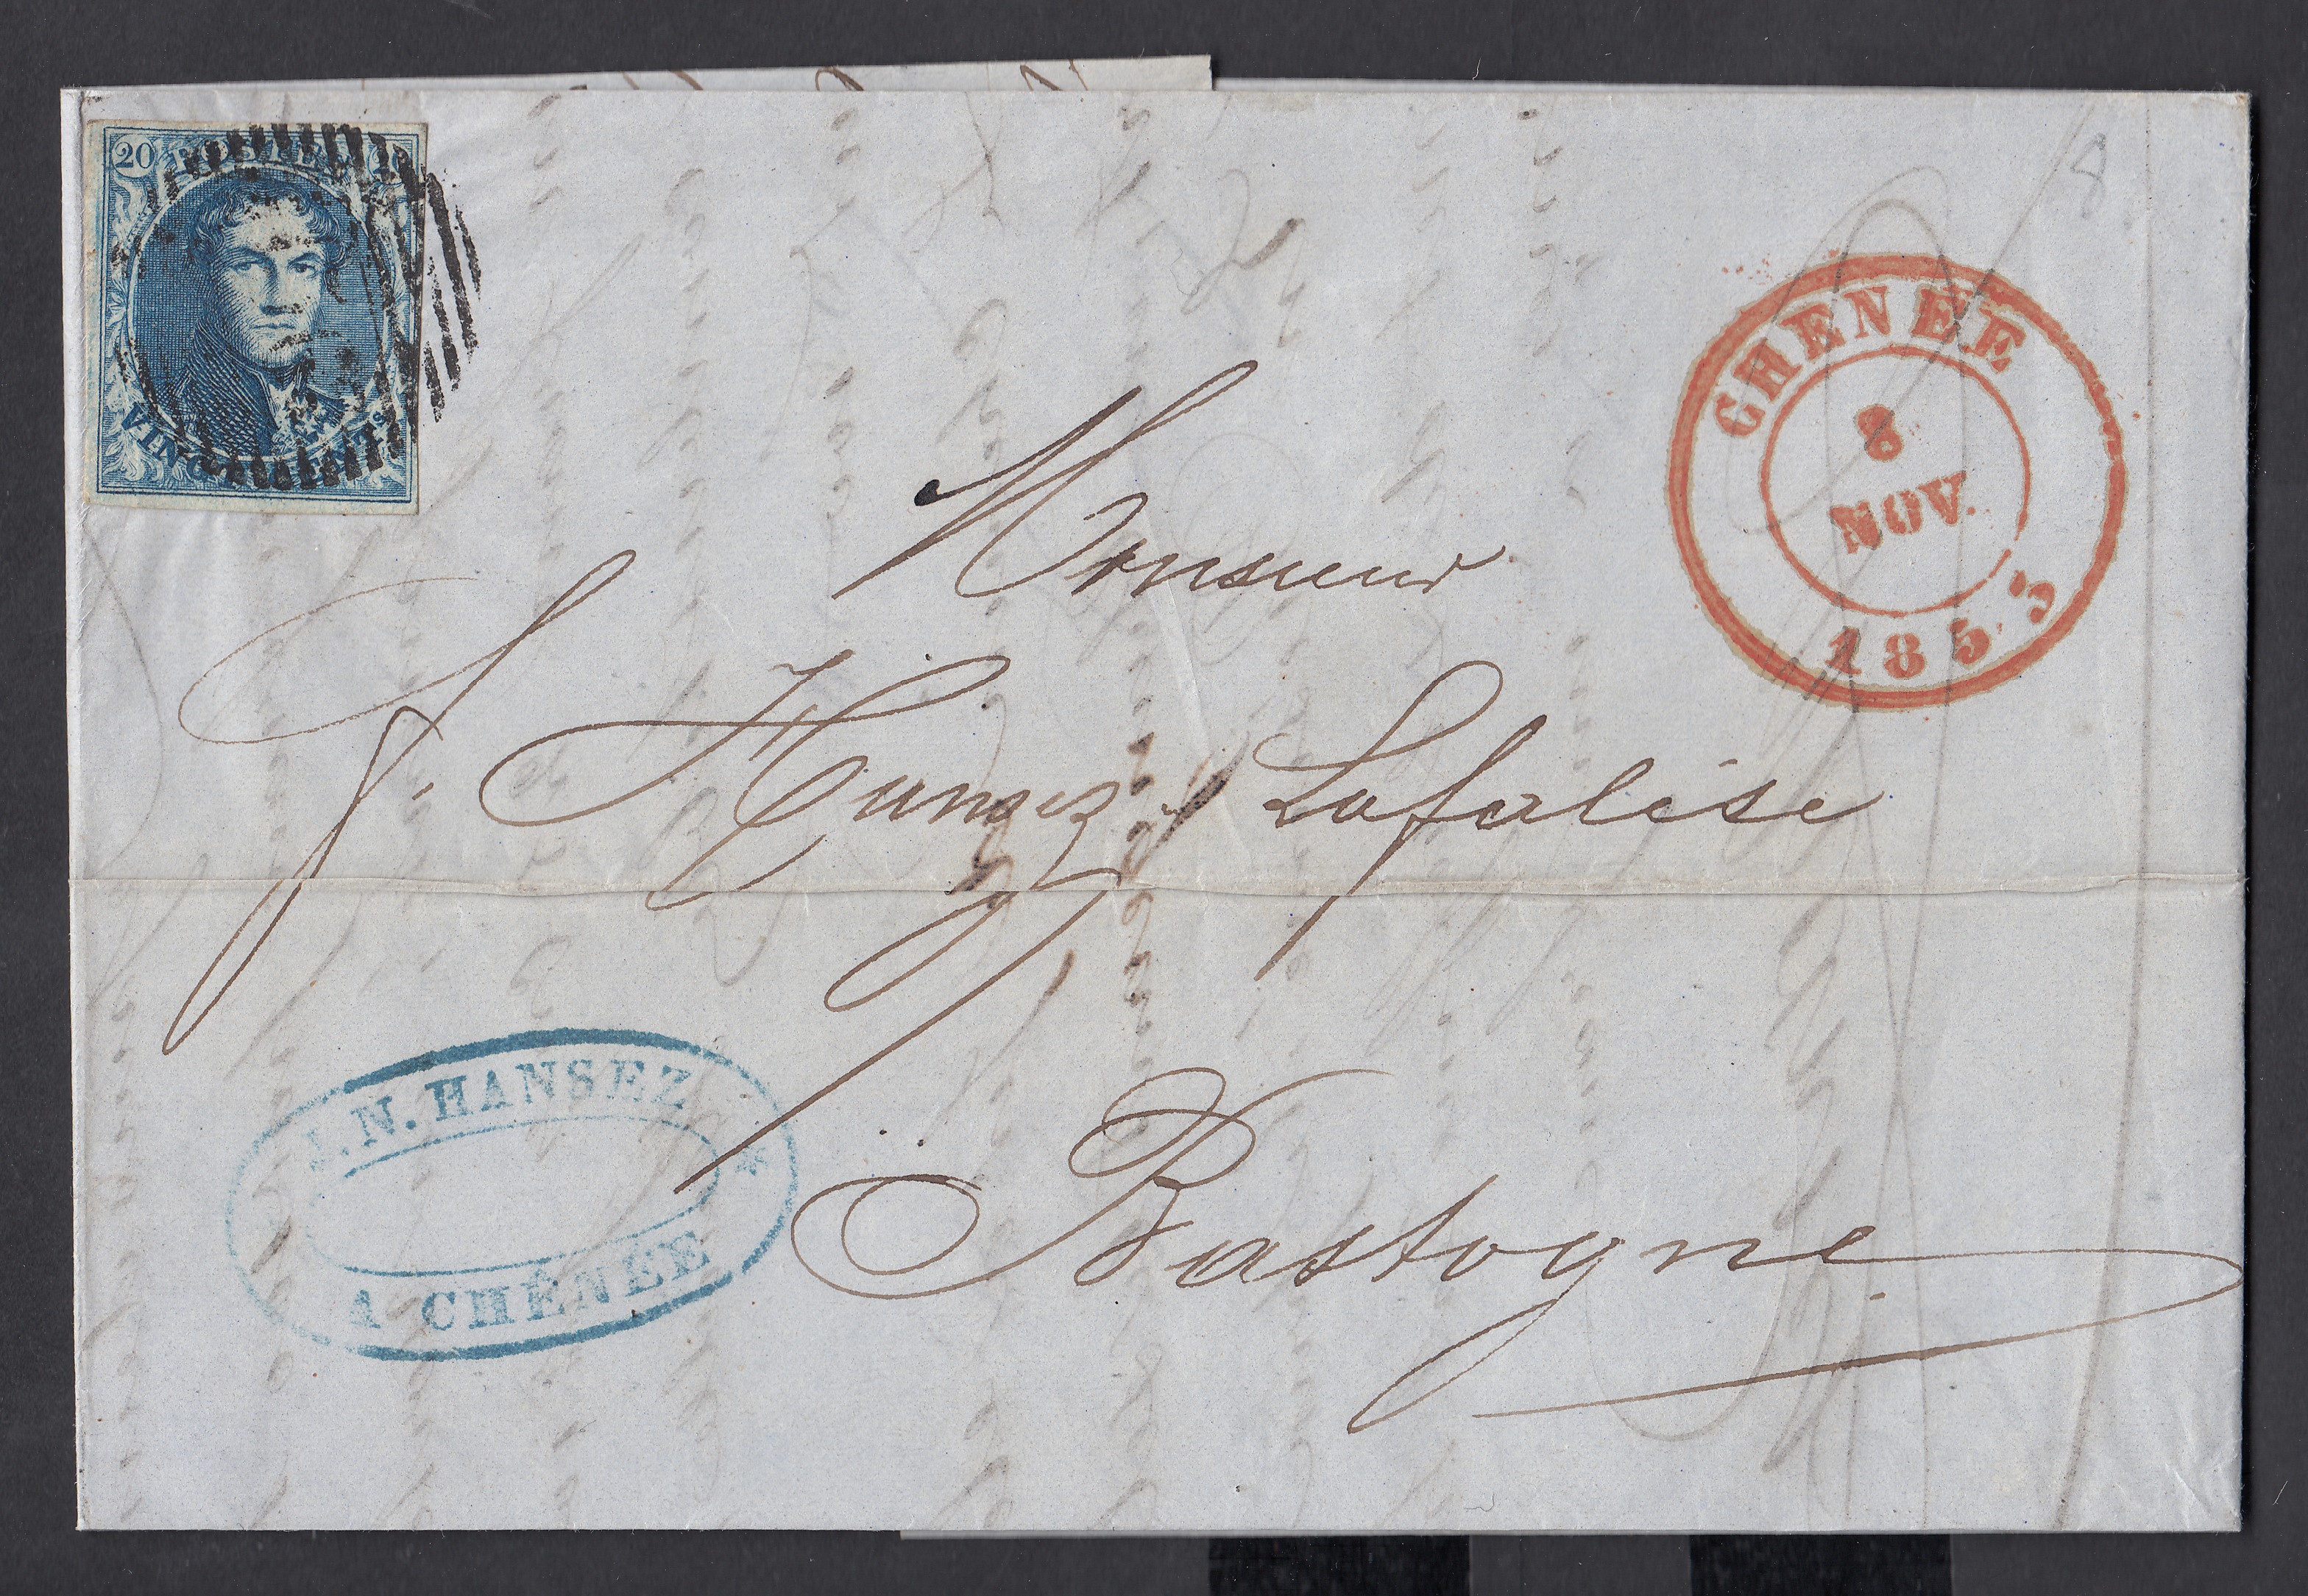 20 POSTES 20
VINGT CENTS
CHENÉE
8
NOV.
185
Monsieur
J. Lafalise
Bastogne
J. N. HANSEZ
A CHÊNÉE